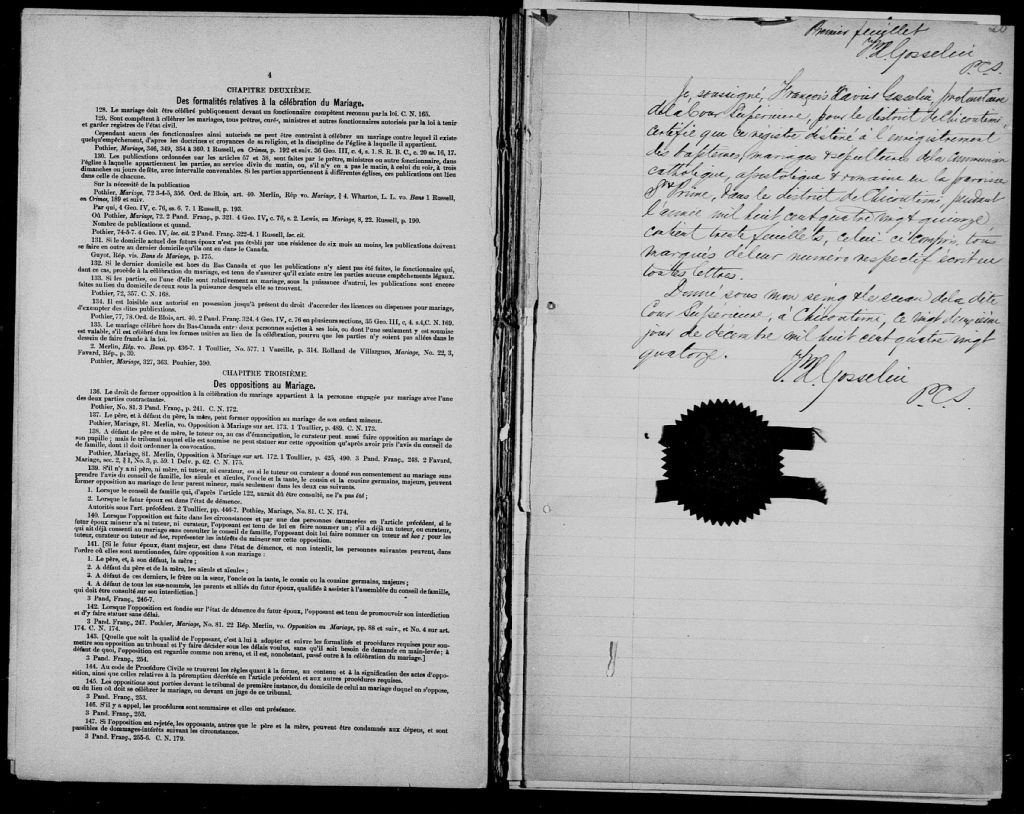 4
CHAPITRE DEUXIÈME.
Des formalités relatives à la célébration du Mariage.
128. Le mariage doit être célébré publiquement devant un fonctionnaire compétent reconnu par la loi. C. N. 165.
129. Sont compétents à célébrer les mariages, tous prêtres, curés, ministres et autres fonctionnaires autorisés par la loi à tenir
et garder registres de l'état civil.
Cependant aucun des fonctionnaires ainsi autorisés ne peut être contraint à célébrer un mariage contre lequel il existe
quelqu'empêchement, d'après les doctrines et croyances de sa religion, et la discipline de l'église à laquelle il appartient.
Pothier, Mariage, 346, 349, 354 à 360. 1 Russell, on Crimes, p. 192 et suiv. 36 Geo. III, c. 4, s. 1. S. R. B. C., c. 20 ss. 16, 17.
130. Les publications ordonnées par les articles 57 et 58, sont faites par le prêtre, ministres ou autre fonctionnaire, dans
l'église à laquelle appartiennent les parties, au service divin du matin, ou, s'il n'y en a pas le matin, à celui du soir, à trois
dimanches ou jours de fête, avec intervalle convenables. Si les parties appartiennent à différentes églises, ces publications ont lieu
dans celle de chacune.
Sur la nécessité de la publication
Pothier, Mariage, 72 3-4-5, 356. Ord. de Blois, art. 40. Merlin, Rép vo. Mariage, § 4. Wharton, L. L. vo. Bans 1 Russell,
on Crimes, 189 et suiv.
Par qui, 4 Geo. IV, c. 76, ss. 6. 7. 1 Russell, p. 193.
Où Pothier, Mariage, 72. 2 Pand. Franç., p. 321. 4 Geo. IV, c. 76, s. 2. Lewis, on Mariage, 8, 22. Russell, p. 190.
Nombre de publications et quand.
Pothier, 74-5-7. 4 Geo. IV, loc. cit. 2 Pand. Franç. 322-4. 1 Russell, loc. cit.
131. Si le domicile actuel des futurs époux n'est pas établi par une résidence de six mois au moins, les publications doivent
se faire en outre au dernier domicile qu'ils ont eu dans le Canada.
Guyot, Rép. vis. Bans de Mariage, p. 175.
132. Si le dernier domicile est hors du Bas Canada et que les publications n'y aient pas été faites, le fonctionnaire qui,
dant ce cas, procède à la célébration du mariage, est tenu de s'assurer qu'il existe entre les parties aucuns empêchements légaux.
133. Si les parties, ou l'une d'elle sont relativement au mariage, sous la puissance d'autrui, les publications sont encore
faites au lieu du domicile de ceux sous la puissance desquels elle se trouvent.
Pothier, 72, 357. C. N. 168.
134. Il est loisible aux autorité en possession jusqu'à présent du droit d'accorder des licences ou dispenses pour mariage,
d'exempter des dites publications.
Pothier, 77, 78. Ord. de Blois, art. 40. 2 Pand. Franç. 324, 4 Geo. IV, c. 76 en plusieurs sections, 35 Geo. III, c. 4, s. 4, C. N. 169.
135. Le mariage célébré hors du Bas-Canada entre deux personnes sujettes à ses lois, ou dont l'une seulement y est soumise
est valable, s'il est célébré dans les formes usitées au lieu de la célébration, pourvu que les parties n'y soient pas allées dans le
dessein de faire fraude à la loi.
2. Merlin, Rép. vo. Bans. pp. 436-7. 1 Toullier, No. 577. 1 Vazeille, p. 314. Rolland de Villargues, Mariage, No. 22, 3,
Favard, Rép., p. 30.
Pothier, Mariage, 327, 363. Pouhier, 390.
CHAPITRE TROISIÈME.
Des oppositions au Mariage.
136. Le droit de former opposition à la célébration du mariage appartient à la personne engagée par mariage avec l'une
des deux parties contractantes.
Pothier, No. 81. 3 Pand. Franç., p. 241. C. N. 172.
137. Le père, et à défaut du père, la mère, peut former opposition au mariage de son enfant mineur.
Pothier, Mariage, 81. Merlin, vo. Opposition à Mariage sur art. 173. 1 Toullier, p. 489. C. N. 173.
138. A défaut de père et de mère, le tuteur ou, au cas d'émancipation, le curateur peut aussi faire opposition au mariage de
son pupille; mais le tribunal auquel elle est soumise ne peut statuer sur cette opposition qu'après avoir pris l'avis du conseil de
famille, dont il doit ordonner la convocation.
Pothier, Mariage, 81. Merlin, Opposition à Mariage sur art. 172. 1 Toullier, p. 425, 490. 3 Pand. Franç., 248. 2 Favard,
Mariage, sec. 2, § 1, No. 3, p. 59. 1 Delv. p. 62. C. N. 175.
139. S'il n'y a ni père, ni mère, ni tuteur, ni curateur, ou si le tuteur ou curateur a donné son consentement au mariage sans
prendre l'avis du conseil de famille, les aïeuls et aïeules, l'oncle et la tante, le cousin et la cousine germains, majeurs, peuvent
former opposition au mariage de leur parent mineur, mais seulement dans les deux cas suivants.
1. Lorsque le conseil de famille qui, d'après l'article 122, aurait dû être consulté, ne l'a pas été;
2. Lorsque le futur époux est dans l'état de démence.
Autorités sous l'art. précédent. 2 Toullier, pp. 446-7. Pothier, Mariage, No. 81. C. N. 174.
140. Lorsque l'opposition est faite dans les circonstances et par une des personnes énumérées en l'article précédent, si le
futur époux mineur n'a ni tuteur, ni curateur, l'opposant est tenu de lui en faire nommer un; s'il a déjà un tuteur, ou curateur,
qui ait déjà consenti au mariage sans consulter le conseil de famille, l'opposant doit lui faire nommer un tuteur ad hoc; pour les
tuteur, curateur ou tuteur ad hoc, représenter les intérêts du mineur sur cette opposition.
141. [Si le futur époux, étant majeur, est dans l'état de démence, et non interdit, les personnes suivantes peuvent, dans
l'ordre où elles sont mentionnées, faire opposition à son mariage:
1. Le père, et, à son défaut, la mère;
2. A défaut du père et de la mère, les aïeuls et aïeules;
3. A défaut de ces derniers, le frère ou la sœur, l'oncle ou la tante, le cousin ou la cousine germains, majeurs;
4. A défaut de tous les sus-nommés, les parents et alliés du futur époux, qualifiés à assister à l'assemblée du conseil de famille,
qui doit être consulté sur son interdiction.]
3 Pand, Franç., 246-7.
142. Lorsque l'opposition est fondée sur l'état de démence du futur époux, l'opposant est tenu de promouvoir son interdiction
et d'y faire statuer sans délai.
3 Pand. Franç., 247. Pothier, Mariage, No. 81. 22 Rép. Merlin, vo. Opposition au Mariage, pp. 88 et suiv., et No. 4 sur art.
174. C. N. 174.
143. [Quelle que soit la qualité de l'opposant, c'est à lui à adopter et suivre les formalités et procédures requises pour soumettre
son opposition au tribunal et l'y faire décider sous les délais voulus, sans qu'il soit besoin de demande en main-levée; à
défaut de quoi, l'opposition est regardée comme non avenu, et il est, nonobstant, passé outre à la célébration du mariage.]
3 Pand. Franç., 254.
144. Au code de Procédure Civile se trouvent les règles quant à la forme, au contenu et à la signification des actes d'opposition,
ainsi que celles relatives à la péremption décrétée en l'article précédent et aux autres procédures requises.
145. Les oppositions sont portées devant le tribunal de première instance, du domicile de celui au mariage duquel on s'oppose,
ou du lieu où doit se célébrer le mariage, ou devant un juge de ce tribunal.
3 Pand. Franç., 253.
146. S'il y a appel, les procédures sont sommaires et elles ont préséance.
3 Pand. Franç., 253.
147. Si l'opposition est rejetée, les opposants, autres que le père et la mère, peuvent être condamnés aux dépens, et sont
passibles de dommages-intérêts suivant les circonstances.
3 Pand. Franç., 255-6. C. N. 179.
Premier feuillet
Gosselin
P.C.S.
Je, soussigné, François Xavier Gosselin, protonotaire
de la Cour Supérieure, pour le district de Chicoutimi,
certifie que ce registre destiné à l'enregistrement
des baptêmes, mariages & sépultures de la Communion
catholique, apostolique & romaine en la paroisse
St Prime, dans le district de Chicoutimi, pendant
l'année mil huit cent quatre vingt quinze
contient trente feuillets, celui ci compris, tous
marqués de leur numéro respectif écrit en
toutes lettres.
Donné sous mon seing & le sceau de la dite
Cour Supérieure, à Chicoutimi, ce vingt deuxième
jour de décembre mil huit cent quatre vingt
quatorze.
Gosselin
P.C.S.